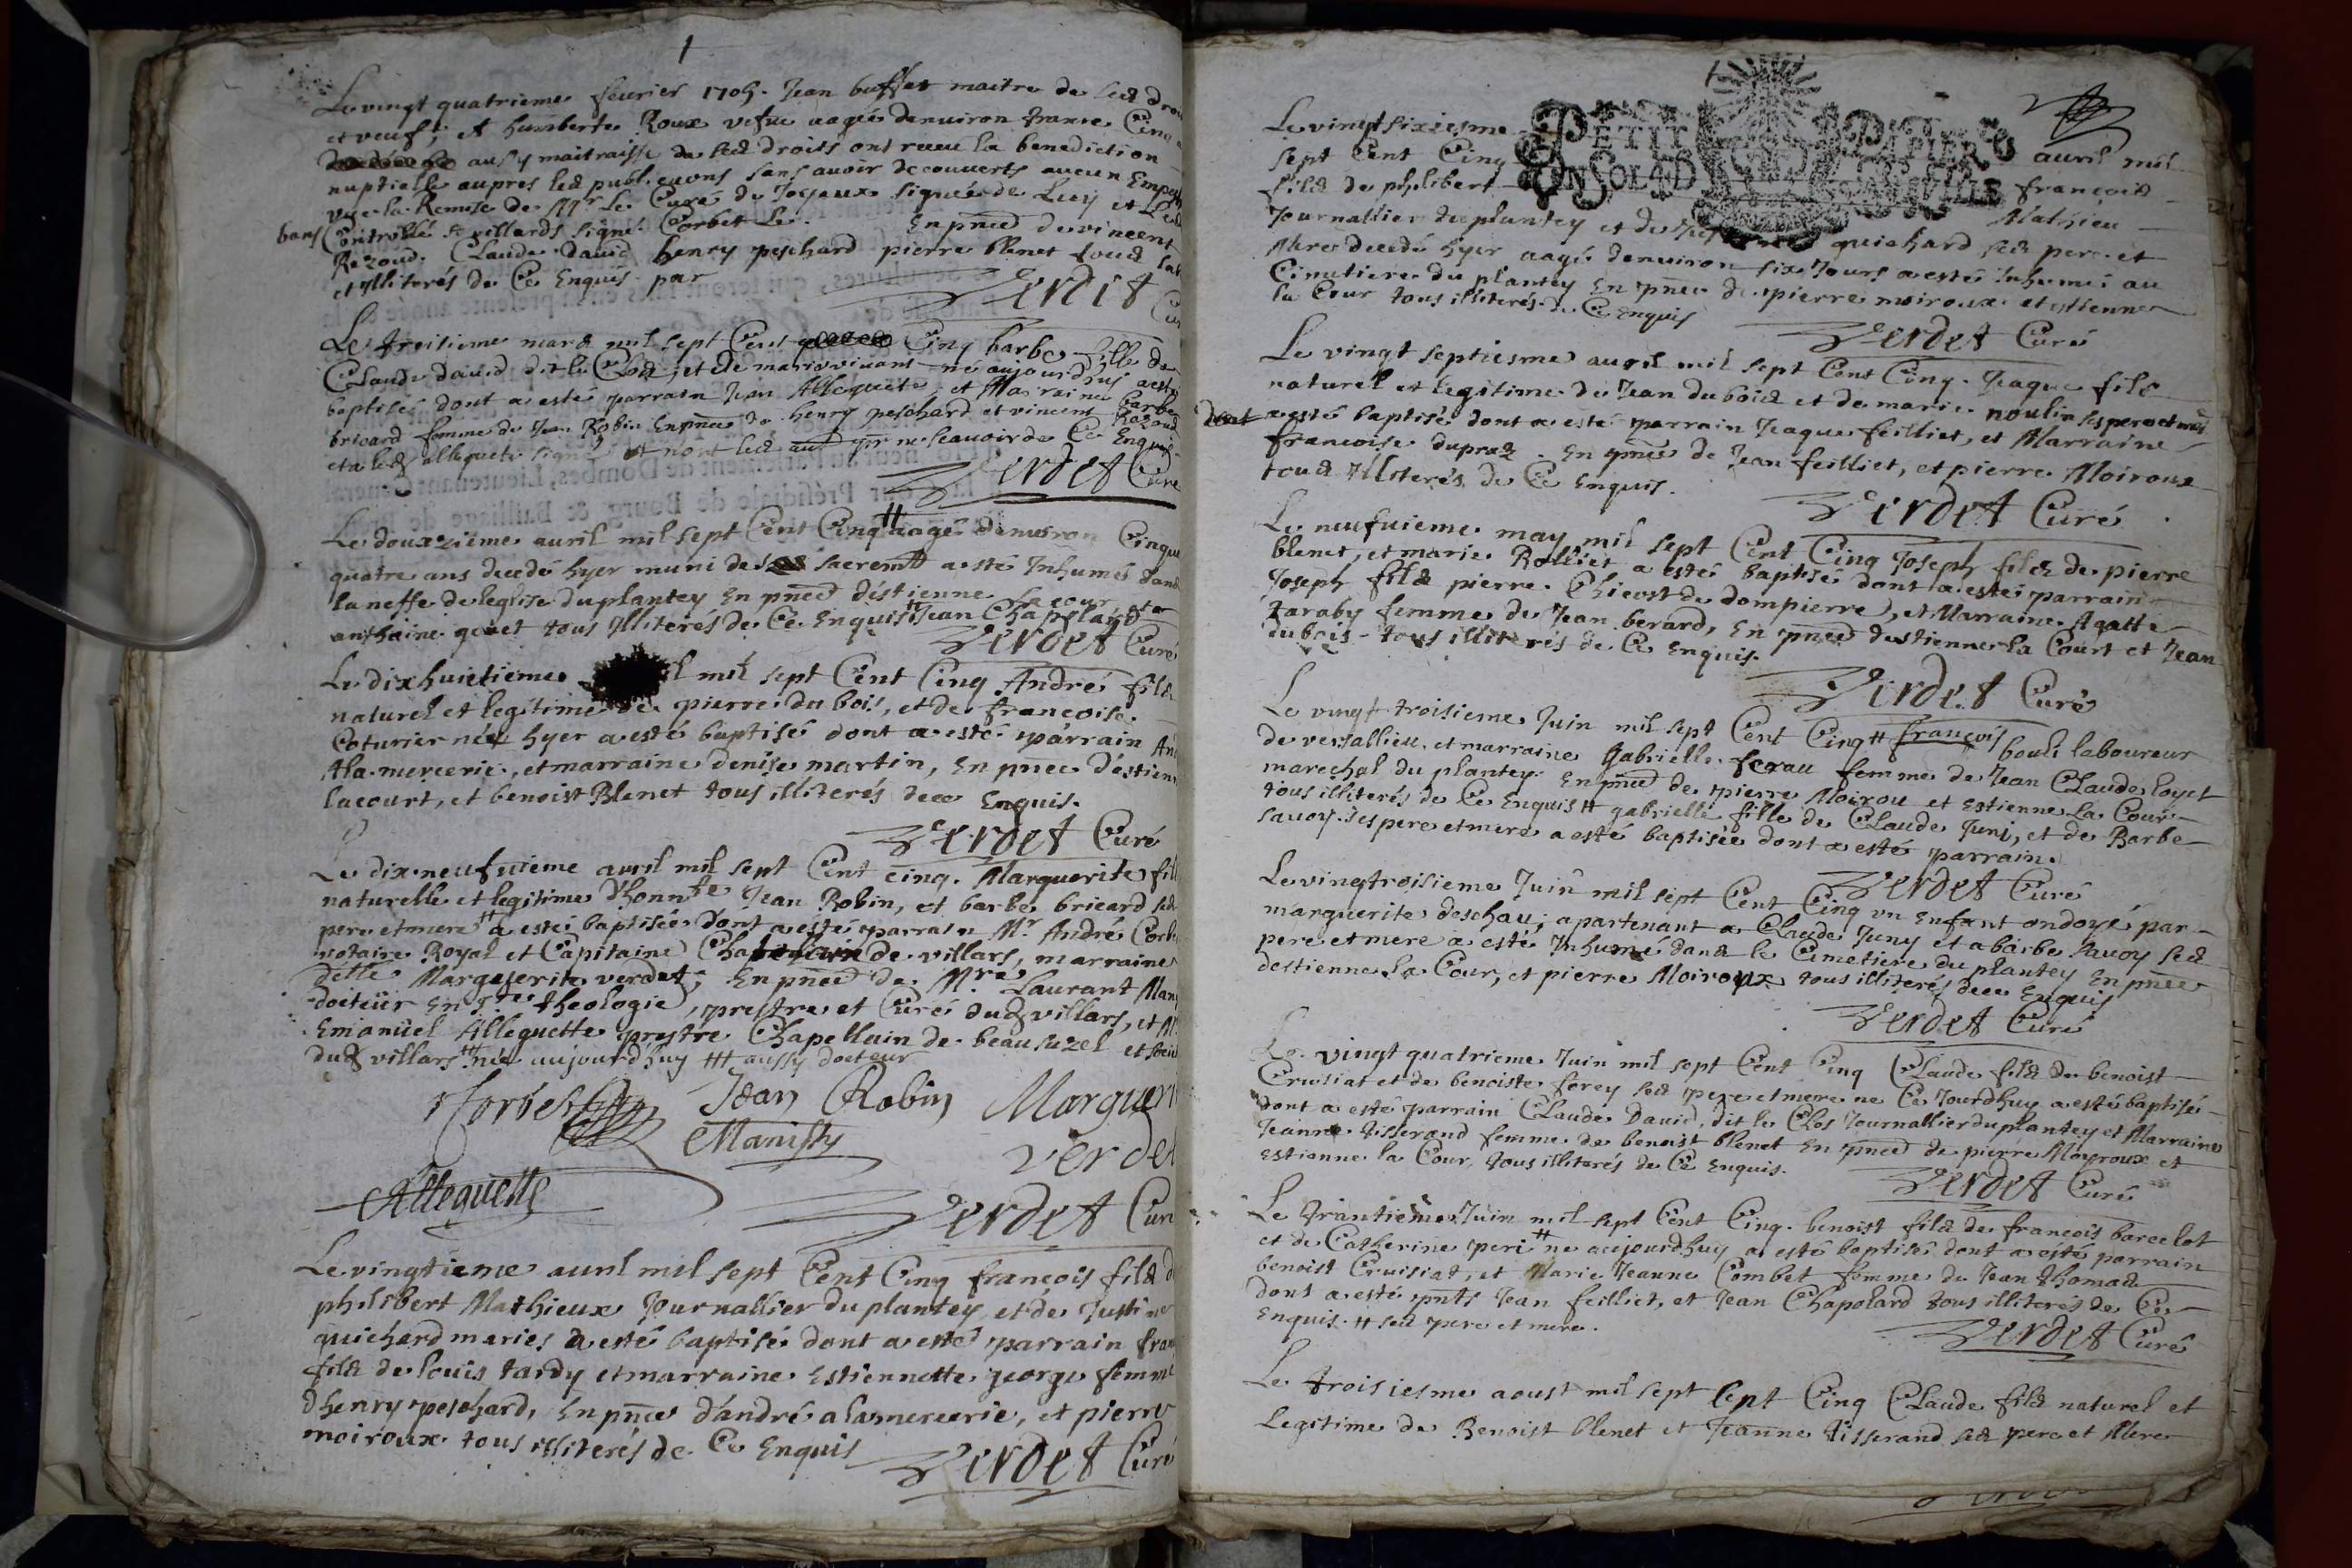 1
Le vingt quatrieme feurier 1705. Jean buffet maitre de sest droi
et veuf, et humberte Roux vefue aagée denuiron trante Cinq
aussy maitraisse de sest droits ont receu la benediction
nuptielle aupres lest publications sans auoir decouverts aucun Empe
veu la Remise de Mr Le Curé de Joyeux signée de Luy et Led
bans Controllé a villards signé Corbet Le. En pnce de vincent
Razoud. Claude dauid henry peschard pierre blenet tous
et illiterés de Ce Enquis par
Verdet Cu
Le troisieme mars mil sept Cent Cinq barbe fille de
Claude dauid dit le Clos, et de marie viuant né aujourdhuy a esté
baptisée dont a esté parrain Jean Alleguete, et Marraine barbe
bricard femme de Jean Robin En pnce de henry peschard et vincent Razoud
et a ledt alleguete signé et non lest aut ppr ne scauoir de Ce Enquis.
Verdet Curé
Le douxzieme auril mil sept Cent Cinq # aagé denuiron Cinqu
quatre ans decedé hyer muni de ses sacrementt a esté Inhumé dans
la neffe de leglise du plantey En pnce d'éstienne Lacour et
anthoine genet tous illiterés de Ce Enquis # Jean Chapolard
Verdet Curé
Le dixhuictieme il mil sept Cent Cinq André fils
naturel et legitime de pierre du bois, et de françoise
Coturier née hyer a esté baptisé dont a esté parrain An
Ala mercerie, et marraine denise martin, En pnce d'estien
lacourt, et benoist Blenet tous illiterés de ce Enquis.
Verdet Curé
Le dix neufuieme auril mil sept Cent cinq. Marguerite fill
naturelle et legitime d'honnte Jean Robin, et barbe bricard ses
pere et mere # a esté baptisée dont a esté parrain Mr André Corb
notaire Royal et Capitaine Chatelain de villars, marraine
delle Marguerite verdet, En pnce de Mre Laurant Man
docteur En ste theologie, prestre et Curé dudt villars, et Mr
Emanuel Alleguette prestre Chapellain de beausuzel et soci
dudt villars # née aujourdhuy ## aussy docteur
Corbet Jean Robin Marguerit
Manissy verdet
Alleguette
Verdet Curé
Le vingtieme auril mil sept Cent Cinq françois fils d
philibert Mathieux Journallier du plantey, et de Justine
guichard mariés a esté baptisé dont a esté parrain fran
fils de louis tardy et marraine Estiennette george femme
dhenry peschard, En pnce d'andré a lamercerie, et pierre
moiroux tous illiterés de Ce Enquis
Verdet Curé
1
PETIT PAPIER
UN SOL 4 D
Le vingt sixiesme auril mil
sept Cent Cinq françois
fils de philibert Mathieu
Journallier du plantey et de guichard ses pere et
Mere decedé hyer aagé denuiron six Jours a esté Inhumé au
Cimetiere du plantey En pnce de pierre moiroux et estienne
la Cour tous illiterés de Ce Enquis
Verdet Curé
Le vingt septiesme auril mil sept Cent Cinq. Jaque fils
naturel et legitime de Jean du bois et de marie noulin ses pere et mere
dont a esté baptisé dont a esté parrain Jaque feilliet, et Marraine
francoise dupras. En pnce de Jean feilliet, et pierre Moiroux
tous illiterés de Ce Enquis.
Verdet Curé
Le neufuieme may mil sept Cent Cinq Joseph fils de pierre
blenet, et marie Rolliet a esté baptisé dont a esté parrain
Joseph fils pierre Chieost de dompierre, et Marraine Agatte
taraby femme de Jean berard, En pnce destienne la Court et Jean
dubois tous illiterés de Ce Enquis.
Verdet Curé
Le vingt troisieme Juin mil sept Cent Cinq # françois bouli laboureur
de versallieu, et marraine Gabrielle ferau femme de Jean Claude loyet
marechal du plantey. En pnce de pierre Moirou et Estienne la Cour
tous illiterés de Ce Enquis # gabrielle fille de Claude Juni, et de Barbe
sauoy ses pere et mere a esté baptisée dont a esté parrain
Verdet Curé
Le vingtroisieme Juin mil sept Cent Cinq vn Enfant ondoyé par
marguerite deschau; apartenant a Claude Juny et a barbe sauoy ses
pere et mere a esté Inhumé dans le Cimetiere du plantey En pnce
destienne la Cour, et pierre Moiroux tous illiterés de ce Enquis
Verdet Curé
Le vingt quatrieme Juin mil sept Cent Cinq Claude fils de benoist
Cruisiat et de benoiste forey ses pere et mere ne Ce Jourdhuy a esté baptisé
dont a esté parrain Claude Dauid, dit le Clos Journallier du plantey et Marraine
Jeanne tisserand femme de benoist blenet En pnce de pierre Moyroux et
Estienne la Cour, tous illiterés de Ce Enquis.
Verdet Curé
Le trantieme Juin mil sept Cent Cinq. benoist fils de francois barcelot
et de Catherine peri # ne aujourdhuy a esté baptisé dont a esté parrain
benoist Cruisiat, et Marie Jeanne Combet femme de Jean thomas
dont a esté pnts Jean feilliet, et Jean Chapolard tous illiterés de Ce
Enquis. # ses pere et mere.
Verdet Curé
Le troisiesme aoust mil sept Cept Cinq Claude fils naturel et
Legitime de Benoist blenet et Jeanne tisserand ses pere et Mere